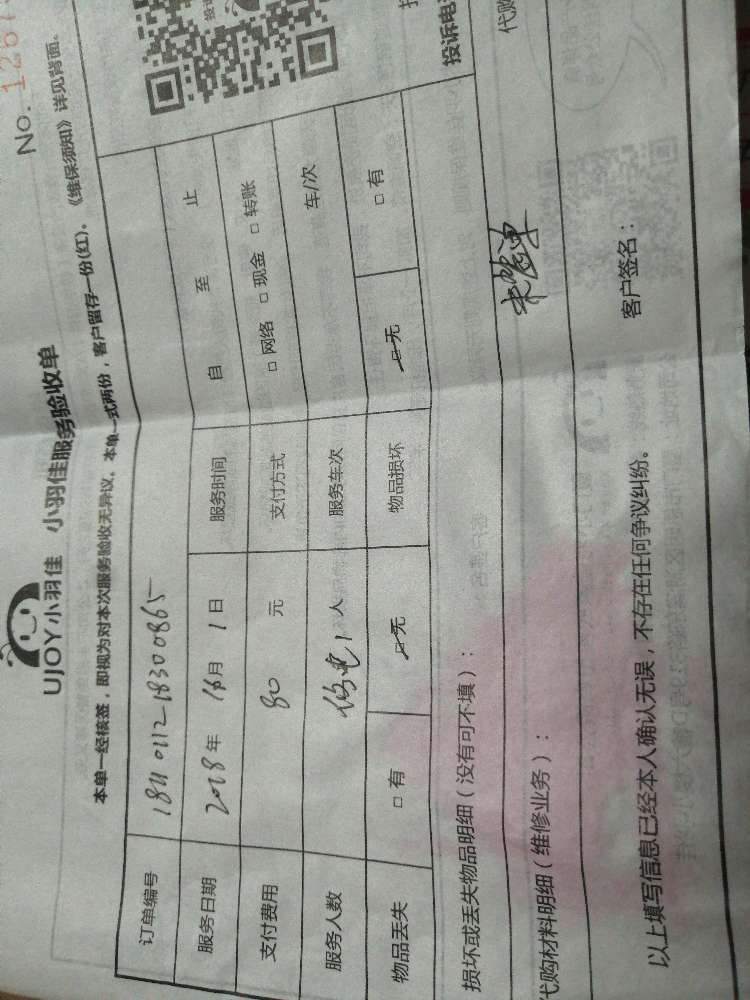 No. 1267
UJOY小羽佳 小羽佳服务验收单
本单一经核签，即视为对本次服务验收无异议。本单一式两份，客户留存一份(红)。《维保须知》详见背面。
订单编号 1811011218300865
服务日期 2018年 11月 1日 服务时间 自 至 止
支付费用 80 元 支付方式 □ 网络 □ 现金 □ 转账
服务人数 1 人 服务车次 车/次
物品丢失 □ 有 □ 无 物品损坏 □ 无 □ 有
损坏或丢失物品明细（没有可不填）：
代购材料明细（维修业务）：
以上填写信息已经本人确认无误，不存在任何争议纠纷。
客户签名：
投诉电
代购